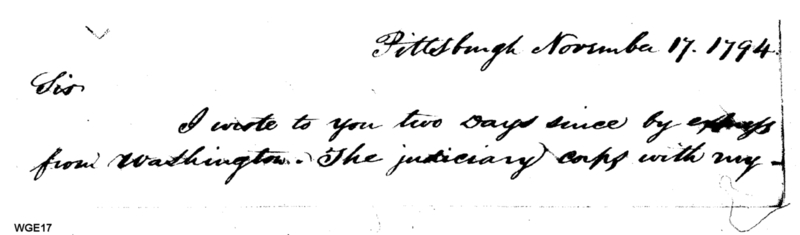 Pittsburgh November 17. 1794
Sir
I wrote to you two Days since by express
from Washington. The judiciary corps with my-
WGE17